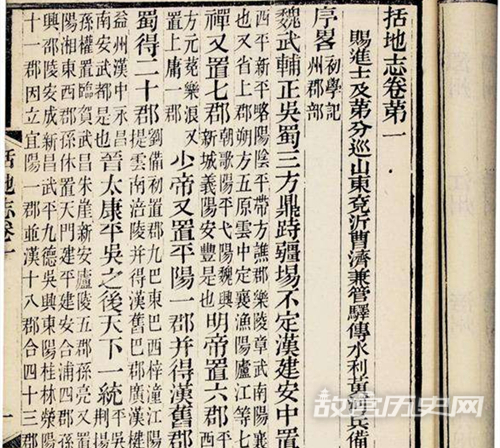 括地志卷第一
賜進士及第分巡山東兗沂曹濟兼管驛傳水利兵備
序畧
初學記
州郡部
魏武輔正吳蜀三方鼎跱疆場不定漢建安中置
西平新平略陽陰平帶方譙郡樂陵章武南陽襄
也又省上朔方五原雲中定襄漁陽廬江等七
禪又置七郡
朝歌陽平弋陽魏興
新城義陽安豐是也
明帝置六郡
方元菟樂浪又
置上庸一郡
少帝又置平陽一郡并得漢舊郡
蜀得二十郡
劉備初置郡九巴東巴西梓潼江陽
提雲南涪陵并得漢舊巴郡廣漢犍
益州漢中永昌
南安武都是也
晉太康平吳之後天下一統
平吳
荆揚
孫權置臨賀武昌朱崖新安廬陵五郡孫亮又置
陽湘東西郡孫休置天門建平建安合浦四郡孫
興邵陵安成新昌武平九德吳興東陽桂林滎陽
十一郡因立宜陽一郡並漢十八郡合四十三郡
括地志卷一
故历史网